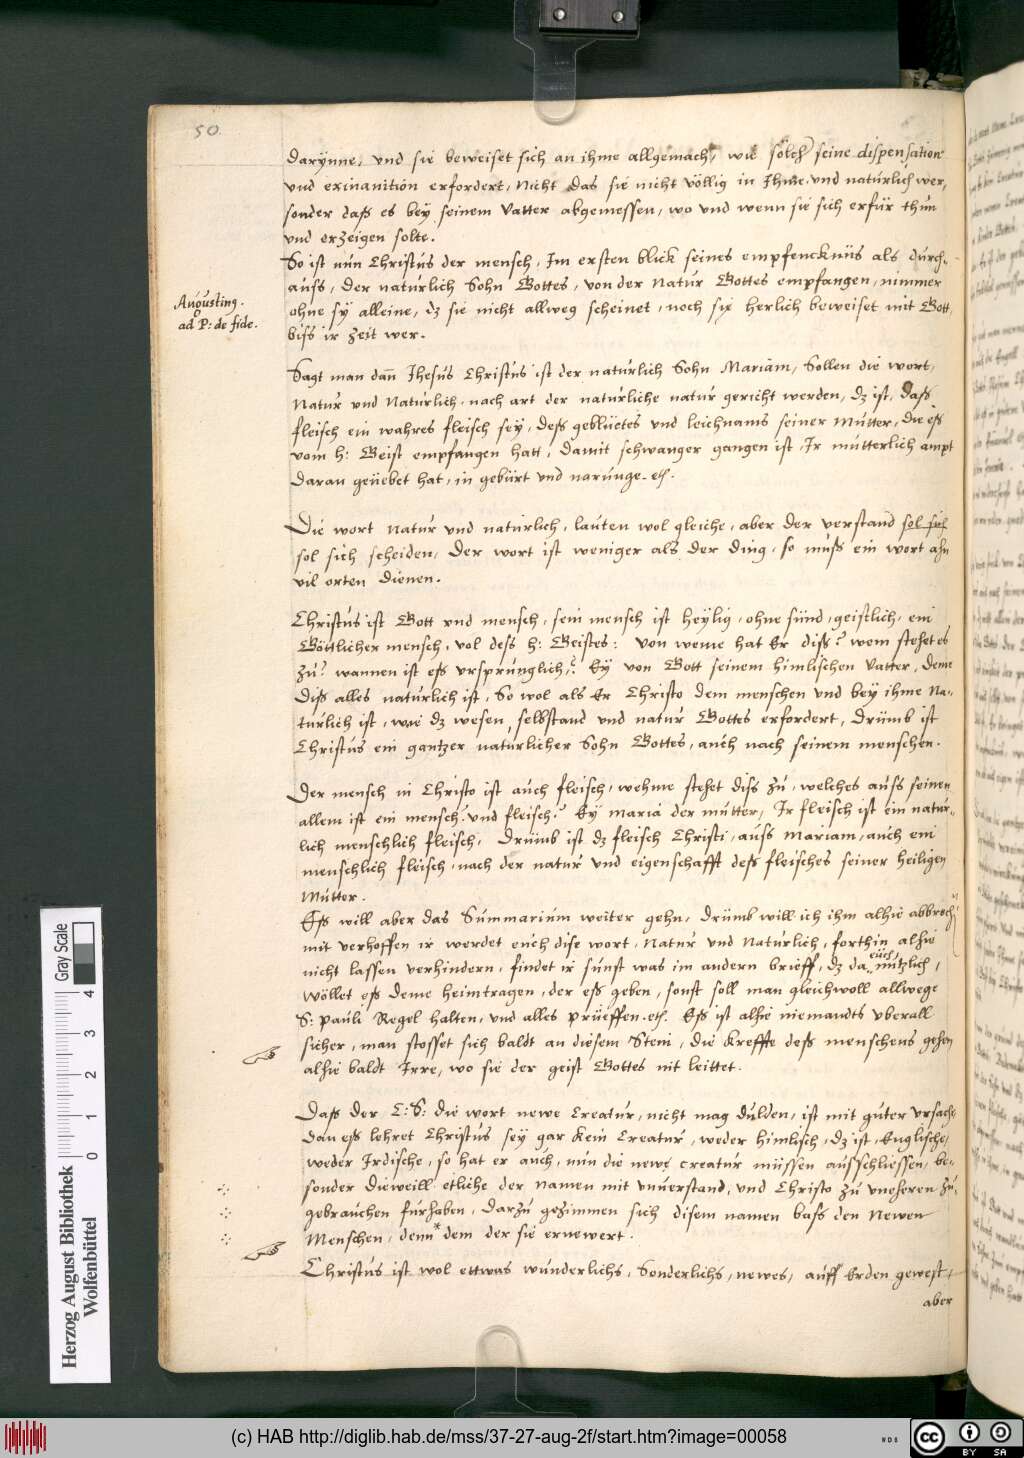 50
darynne, vnd sie beweiset sich an ihme allgemach, wie solch seine dispensation
vnd exinanition erfordert, Nicht das sie nicht völlig in Ihme vnd naturlich wer,
sonder daß es bey seinem Vatter abgemessen, wo vnd wenn sie sich erfür thun
vnd erzeigen solte.
So ist nun Christus der mensch, Im ersten blick seines empfencknüs als durch-
auss, der natürlich Sohn Gottes, von der Natur Gottes empfangen, nimmer
Augusting.
ad P: de fide.
ohne sy alleine, dz sie nicht allweg scheinet, noch sie herlich beweiset mit Gott,
biss ir zeit wer.
Sagt man dañ Jhesus Christus ist der naturlich Sohn Mariam, Sollen die wort,
Natur vnd Naturlich, nach art der naturliche natur gericht werden, dz ist, daß
fleisch ein wahres fleisch sey, deß geblüetes vnd leichnams seiner Mutter, die eß
vom h: Geist empfangen hatt, damit schwanger gangen ist, Ir mutterlich ampt
daran geüebet hat, in gebürt vnd narunge. etc.
Die wort Natur vnd naturlich, lauten wol gleiche, aber der verstand sol sich
sol sich scheiden, Der wort ist weniger als der ding, so muß ein wort ahn
vil orten dienen.
Christus ist Gott vnd mensch, sein mensch ist heylig, ohne sünd, geistlich, ein
Göttlicher mensch, vol dess h: Geistes: Von weme hat Er diss? wem stehet es
zu? wannen ist eß vrsprunglich? Ey von Gott seinem himlischen Vatter, deme
diß alles naturlich ist, So wol als Er Christo dem menschen vnd bey ihme Na-
turlich ist, wie dz wesen, selbstand vnd natur Gottes erfordert, Drümb ist
Christus ein gantzer naturlicher Sohn Gottes, auch nach seinem menschen.
Der mensch in Christo ist auch fleisch, wehme stehet diss zu, welches auss seinen
allem ist ein mensch? vnd fleisch? Ey Maria der mutter, Ir fleisch ist ein natur-
lich menschlich fleisch, Drümb ist dz fleisch Christi, auss Mariam, auch ein
menschlich fleisch, nach der natur vnd eigenschafft deß fleisches seiner heiligen
Mutter.
Eß will aber das Summarium weiter gehn, drümb will ich ihm alhie abbrech
mit verhoffen ir werdet euch dise wort, Natur vnd Naturlich, forthin alhie
nicht lassen verhindern, findet ir sunst was im andern brieff, dz da euch nützlich,
wöllet eß deme heimtragen, der eß geben, sonst soll man gleichwoll allwege
S: Pauli Regel halten, vnd alles prüeffen. etc. Eß ist alhie niemandts vberall
sicher, man stosset sich baldt an diesem Stein, die kreffte deß menschens gehen
alhie baldt Irre, wo sie der geist Gottes nit leittet.
Daß der C: S: die wort newe Creatur, nicht mag dulden, ist mit guter vrsache,
dan eß lehret Christus sey gar kein Creatur, weder himlisch, dz ist, Englische,
weder Irdische, so hat er auch, nun die newe creatur müssen ausschliessen, be-
sonder dieweill etliche der namen mit vnuerstand, vnd Christo zu vneheren zu
gebrauchen fürhaben, Darzu gezimmen sich disem namen bass den Newen
Menschen, denn dem der sie ernewert.
Christus ist wol ettwas wunderlichs, Sonderlichs, newes, auff Erden gewest,
aber
Gray Scale
0 1 2 3 4
Herzog August Bibliothek
Wolfenbüttel
(c) HAB http://diglib.hab.de/mss/37-27-aug-2f/start.htm?image=00058
WDB
cc BY SA